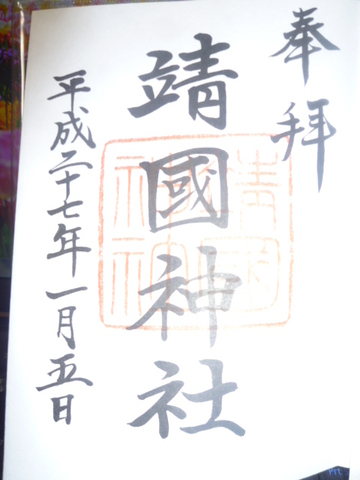 奉拝
靖國神社
平成二十七年一月五日
靖國神社